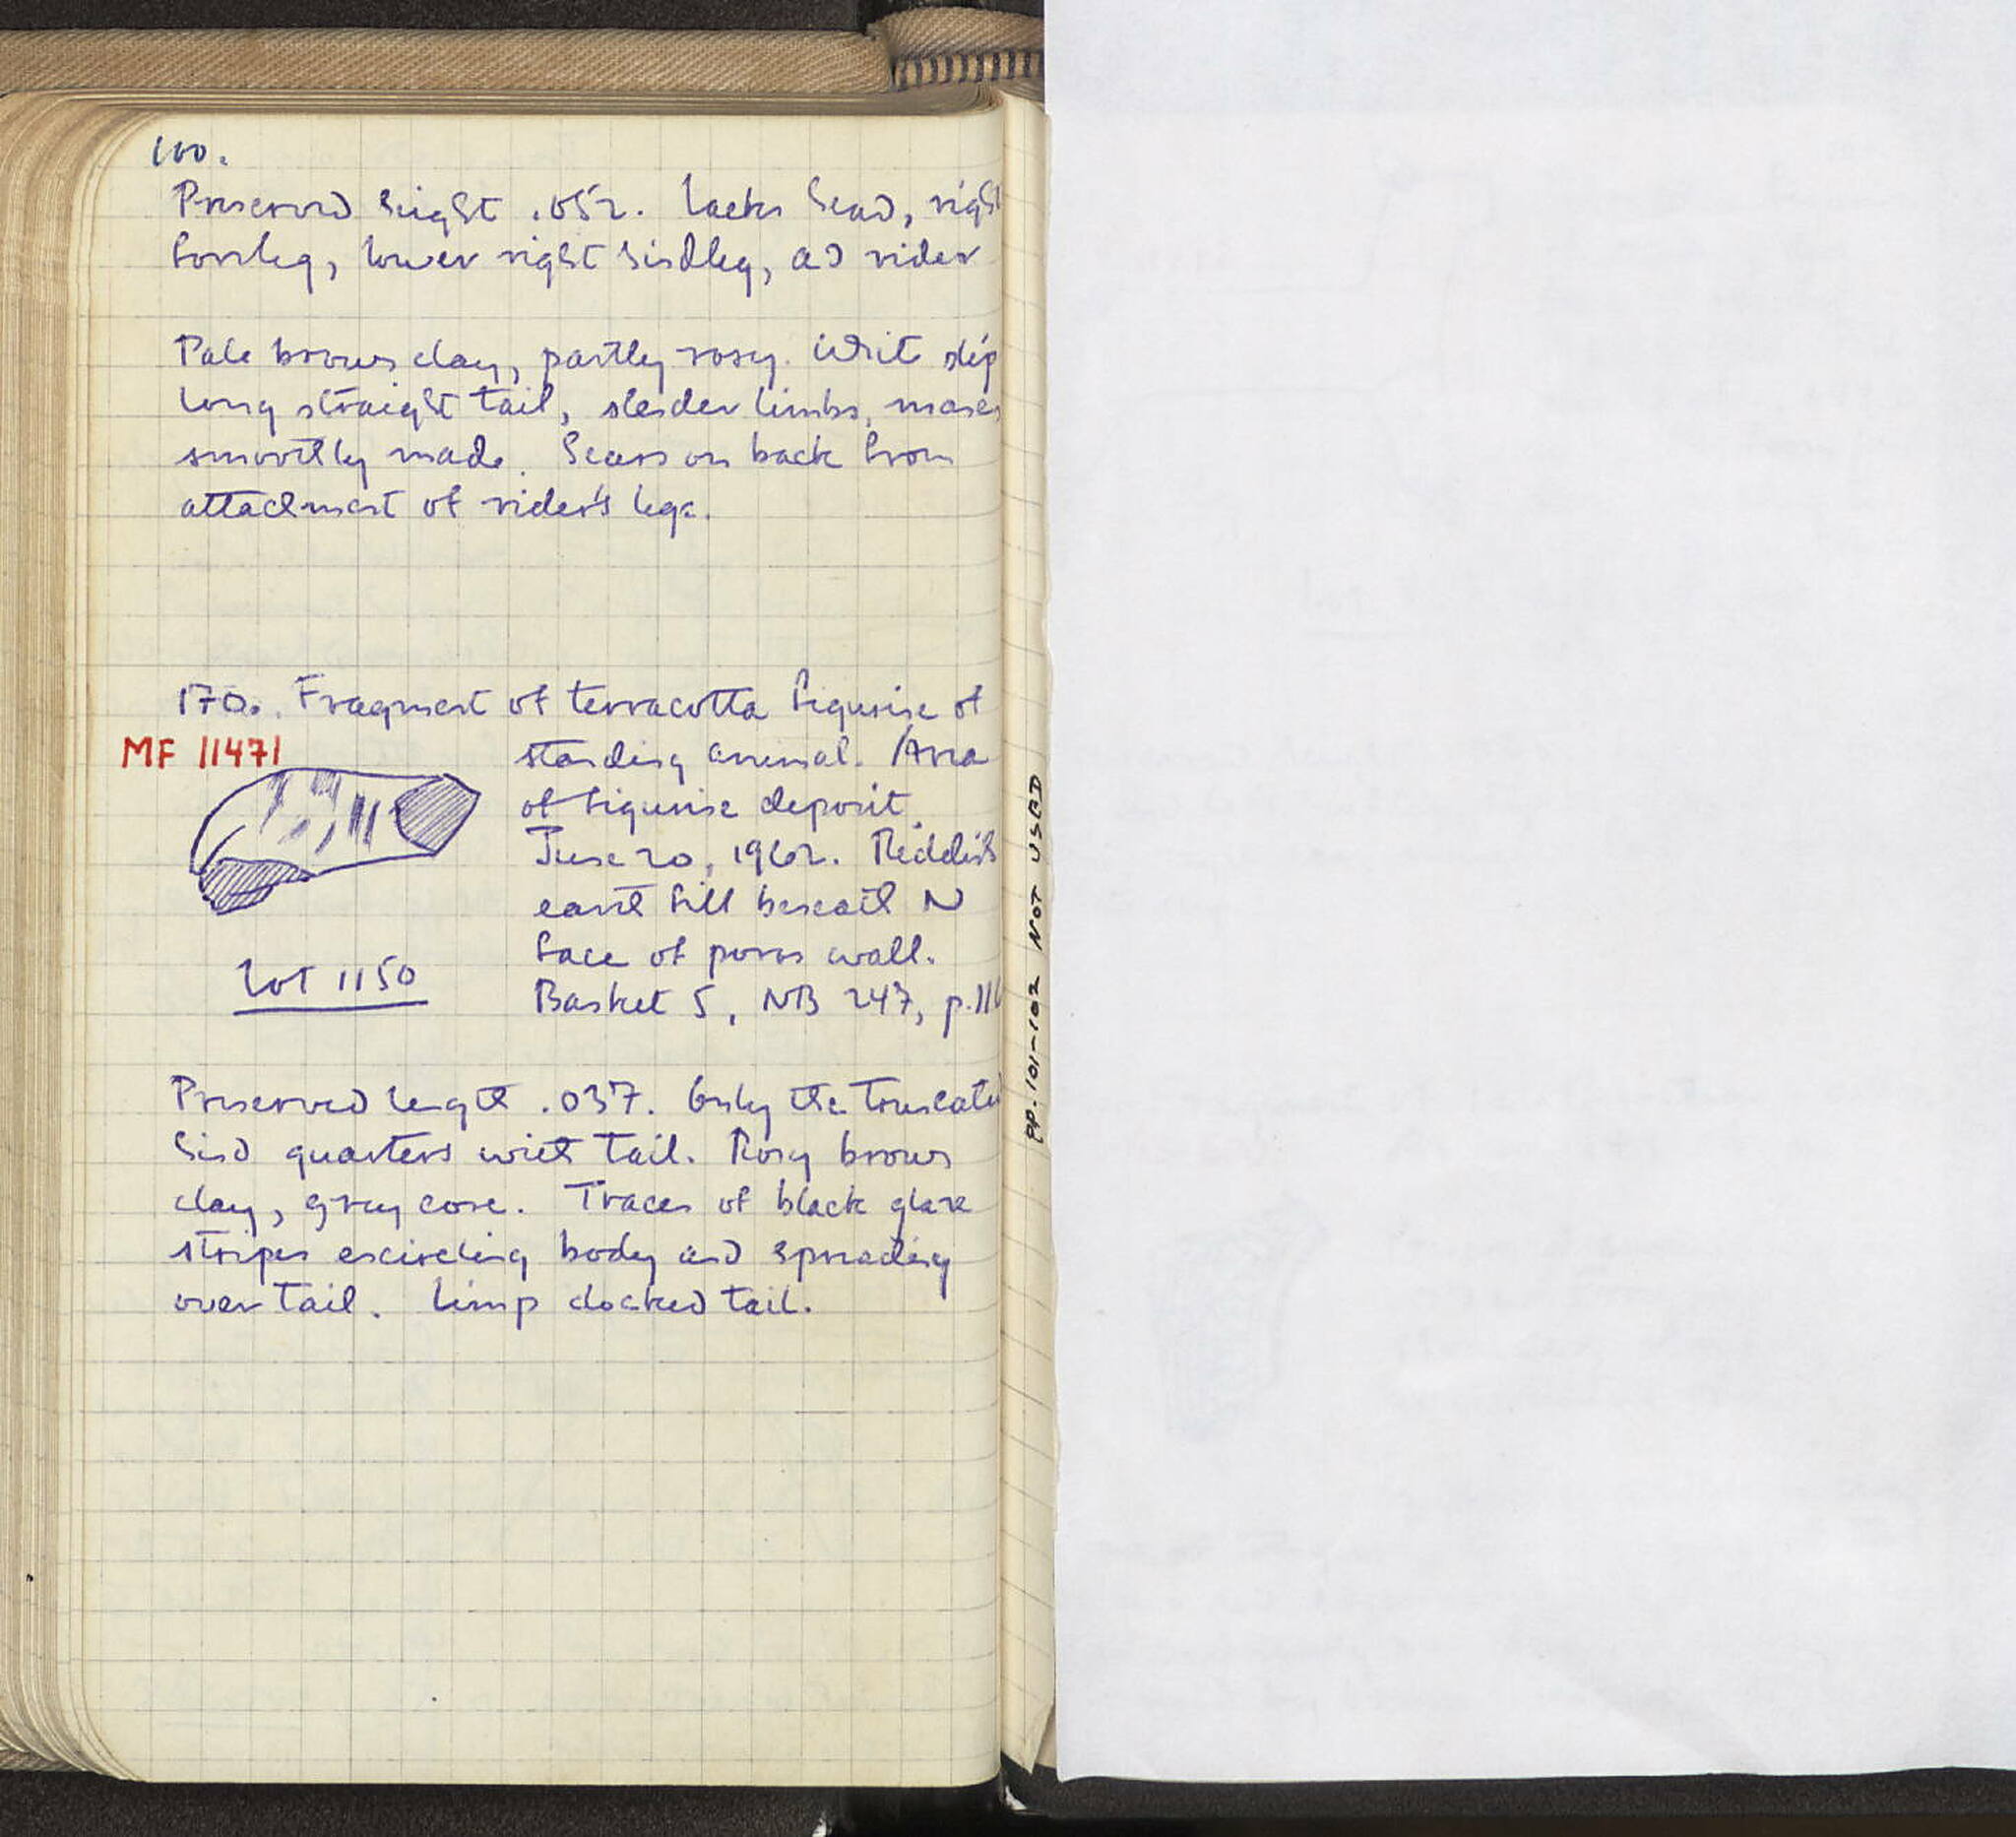 100.
Preserved height .052. Lacks head, right
foreleg, lower right hindleg, and rider
Pale brown clay, partly rosy. White slip
Long straight tail, slender limbs,
smoothly made. Scars on back from
attachment of rider's legs.
170. Fragment of terracotta figurine of
MF 11471
standing animal. Area
of figurine deposit.
June 20, 1962. Reddish
earth fill beneath N
face of poros wall.
Basket 5, NB 247, p.
Lot 1150
Preserved length .037. Only the truncated
hind quarters with tail. Rosy brown
clay, gray core. Traces of black glaze
stripes encircling body and spreading
over tail. Limp docked tail.
PP. 101-102 NOT USED